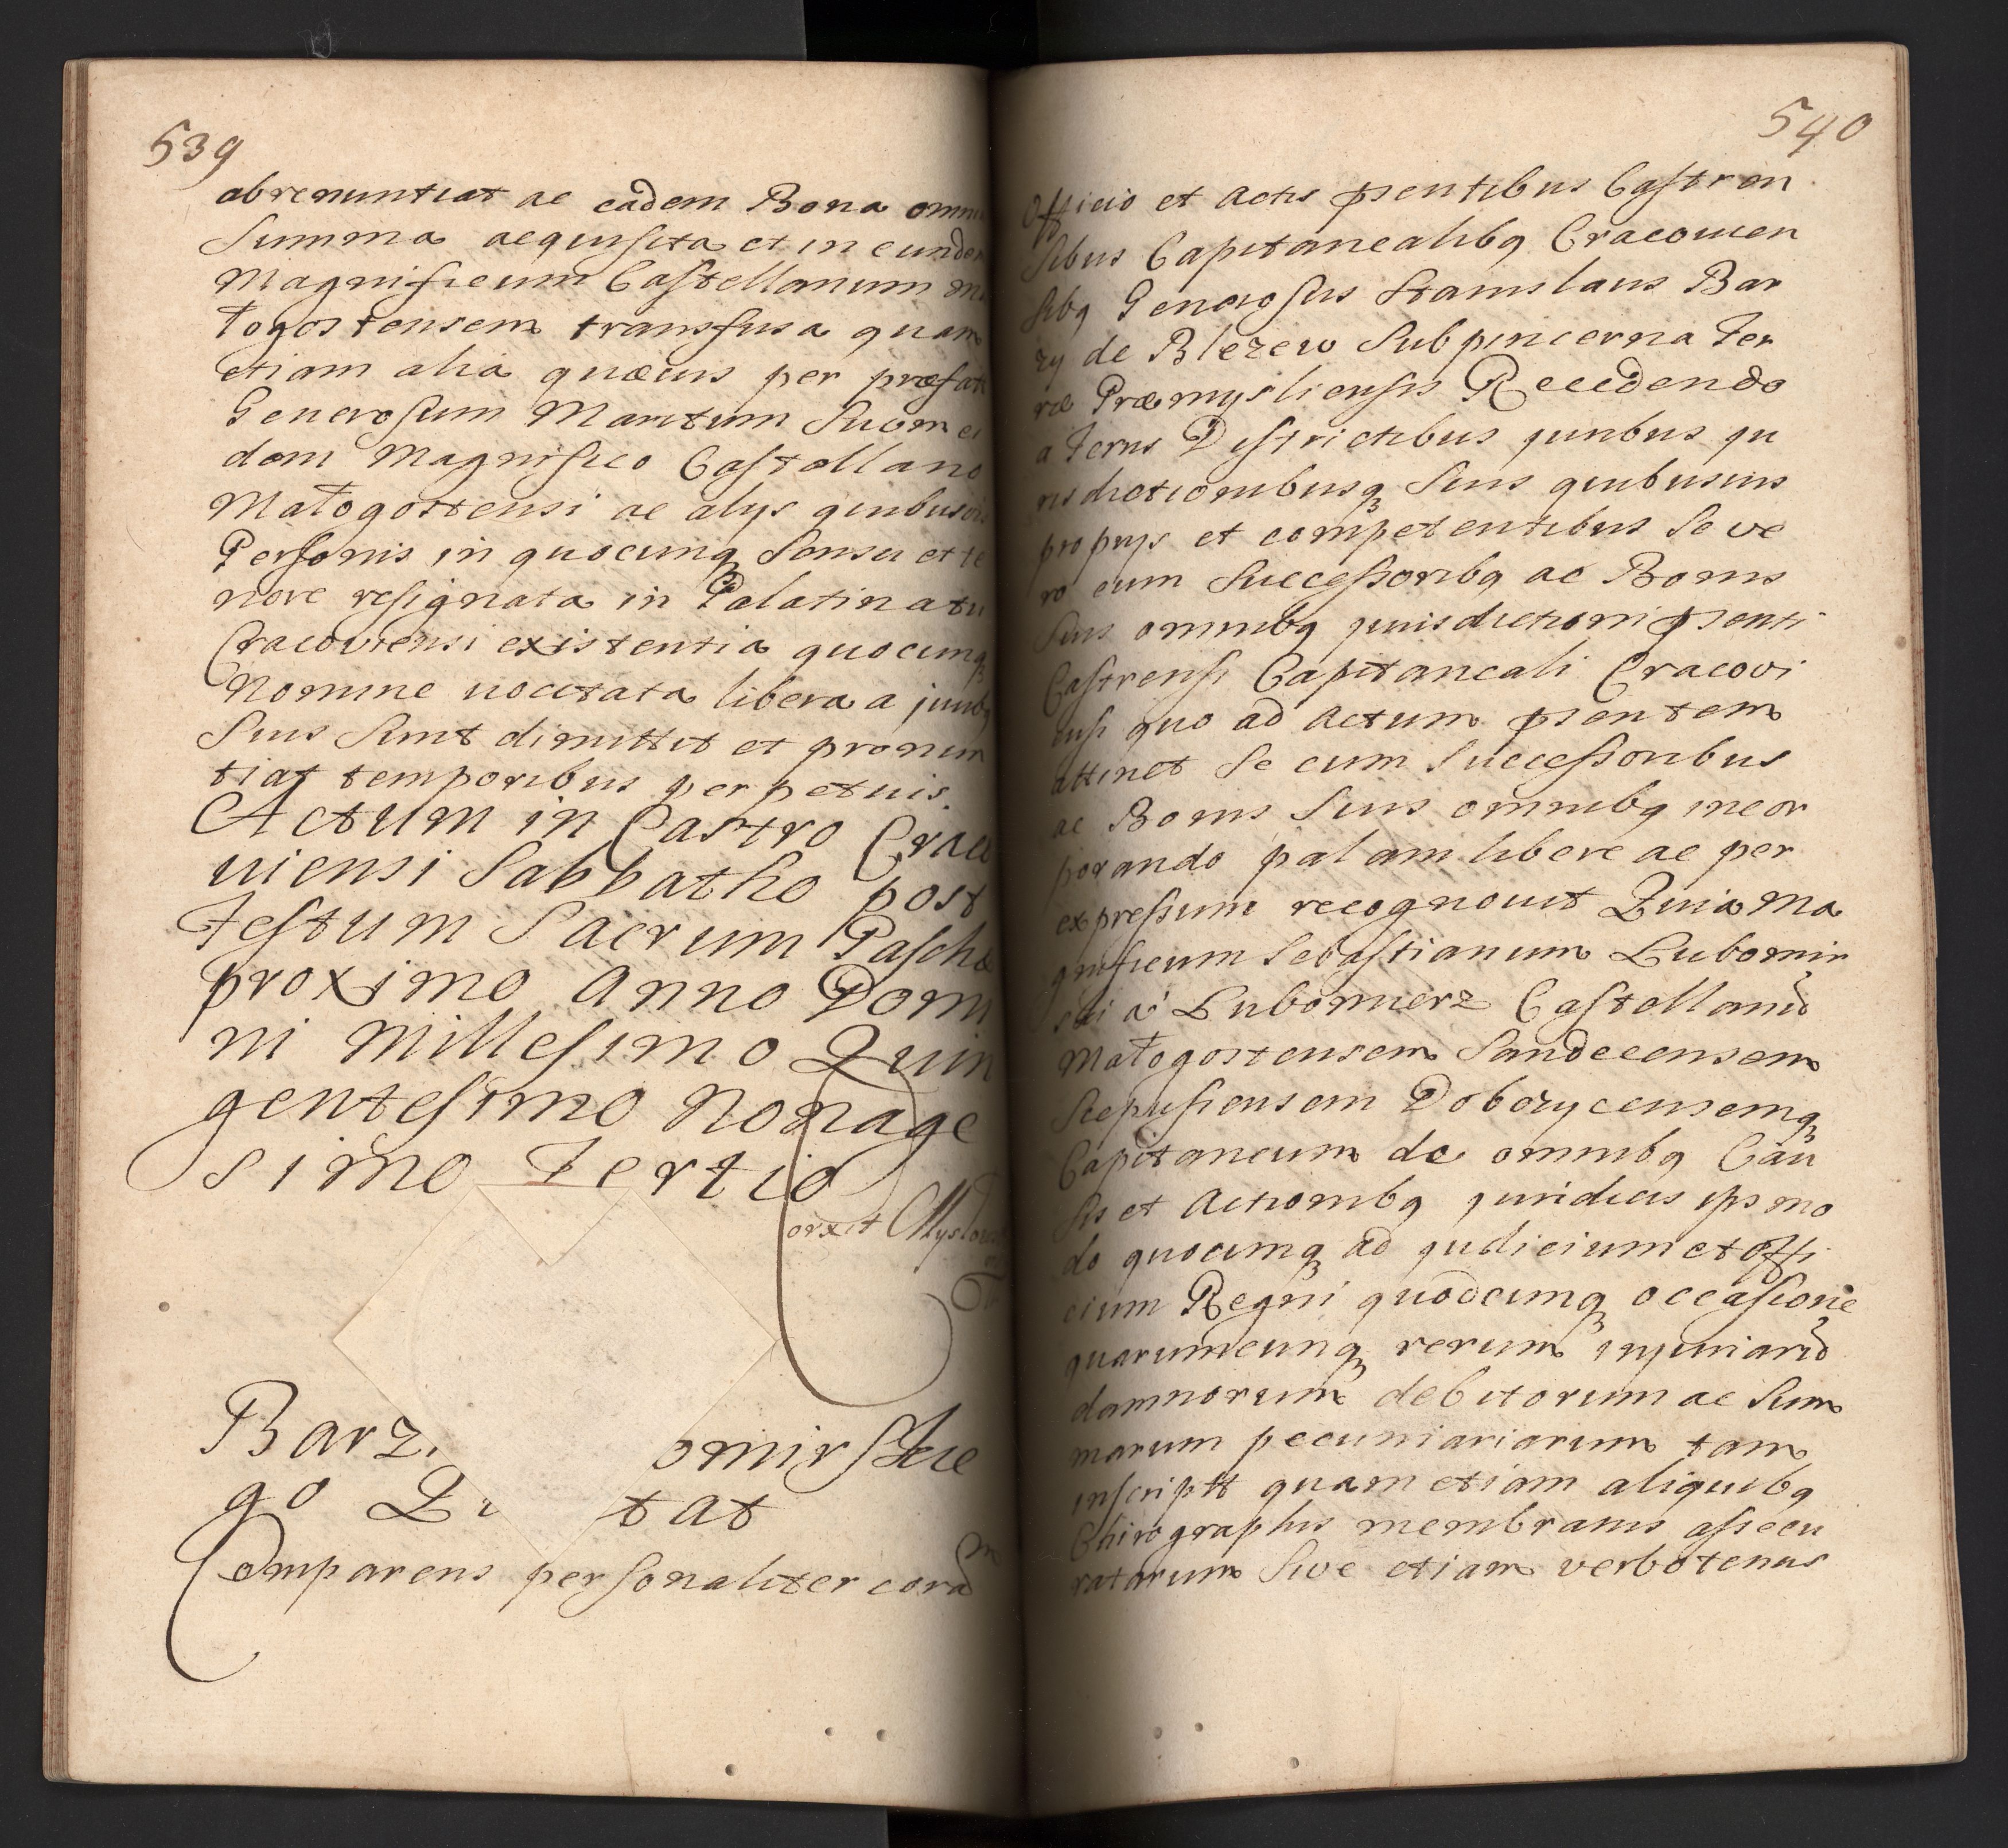 539
abrenuntiat ac eadem Bona omni
Summa acquisita et in eundem
Magnificum Castellanum Ma
łogostensem transfusa quam
etiam alia quævis per præfat
Generosum Maritum Suum ei
dem Magnifico Castellano
Małogostensi ac alys quibusvis
Personis in quocunq3 Sensu et te
nore resignata in Palatinatu
Cracoviensi existentia quocunq3
Nomine vocitata libera a jurib9
Suis Sint dimittit et pronun
tiat temporibus perpetuis.
Actum in Castro Craco
viensi Sabbatho post
Festum Sacrum Paschæ
proximo Anno Domi
ni Millesimo Quin
gentesimo Nonage
simo Tertio
Barz. omirskie
go tat
Comparens personaliter corã
540
Officio et Actis pſentibus Castren
sibus Capitanealib9 Cracovien
sib9 Generosus Stanislaus Bar
zy de Blezew Subpincerna Ter
ræ Præmysliensis Recedendo
a Terris Districtibus juribus ju
risdictionibusq3 Suis quibusvis
proprys et competentibus Se ve
ro cum Successorib9 ac Bonis
Suis omnib9 jurisdictioni pſenti
Castrensi Capitaneali Cracovi
ensi quo ad Actum pſentem
attinet Se cum Successoribus
ac Bonis Suis omnib9 incor
porando palam libere ac per
expressum recognovit Quia Ma
gnificum Sebastianum Lubomir
ski a Lubomierz Castellanũ
Małogostensem Sandecensem
Scepusiensem Dobczycensemq3
Capitaneum de omnib9 Cau
sis et Actionib9 juridicis ipso mo
do quocunq3 ad judicium et offi
cium Regni quodcunq3 occasione
quarumcunq3 rerum injuriarũ
damnorum debitorum ac Sum
marum pecuniariarum tam
inscript quam etiam aliquib9
Chirographis membranis assecu
ratarum Sive etiam verbotenus